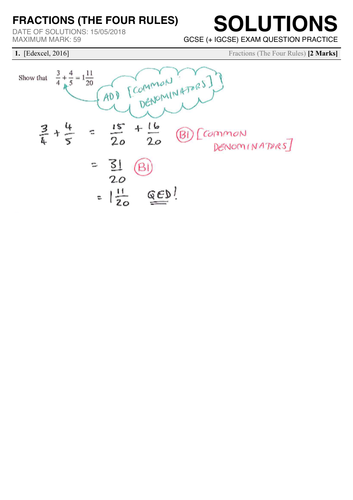 FRACTIONS (THE FOUR RULES)
SOLUTIONS
DATE OF SOLUTIONS: 15/05/2018
MAXIMUM MARK: 59
GCSE (+ IGCSE) EXAM QUESTION PRACTICE
1. [Edexcel, 2016] Fractions (The Four Rules) [2 Marks]
Show that 3/4 + 4/5 = 1 11/20
ADD [COMMON
DENOMINATORS]
3/4 + 4/5 = 15/20 + 16/20 B1 [COMMON
DENOMINATORS]
= 31/20 B1
= 1 11/20 QED!